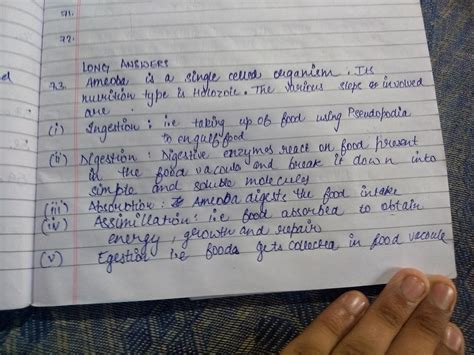 71.
72.
LONG ANSWERS
73. Amoeba is a single celled organism. Its
nutrition type is Holozoic. The various steps involved
are
(i) Ingestion : i.e taking up of food using Pseudopodia
to engulf food
(ii) Digestion : Digestive enzymes react on food present
in the food vacuole and break it down into
simple and soluble molecules
(iii) Absorbtion : Amoeba digests the food intake
(iv) Assimillation : i.e food absorbed to obtain
energy, growth and repair
(v) Egestion i.e food gets collected in food vacuole